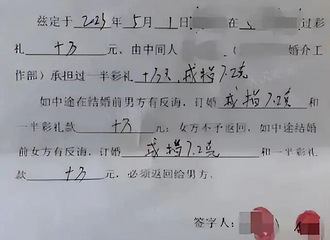 兹定于2023年5月1日 在 过彩
礼十万元，由中间人 、（ 婚介工
作部）承担过一半彩礼十万元，戒指7.2克
如中途在结婚前男方有反海，订婚戒指7.2克和
一半彩礼款十万元，女方不予返回，如中途结婚
前女方有反海，订婚戒指7.2克和一半彩礼
款十万元，必须返回给男方。
签字人：